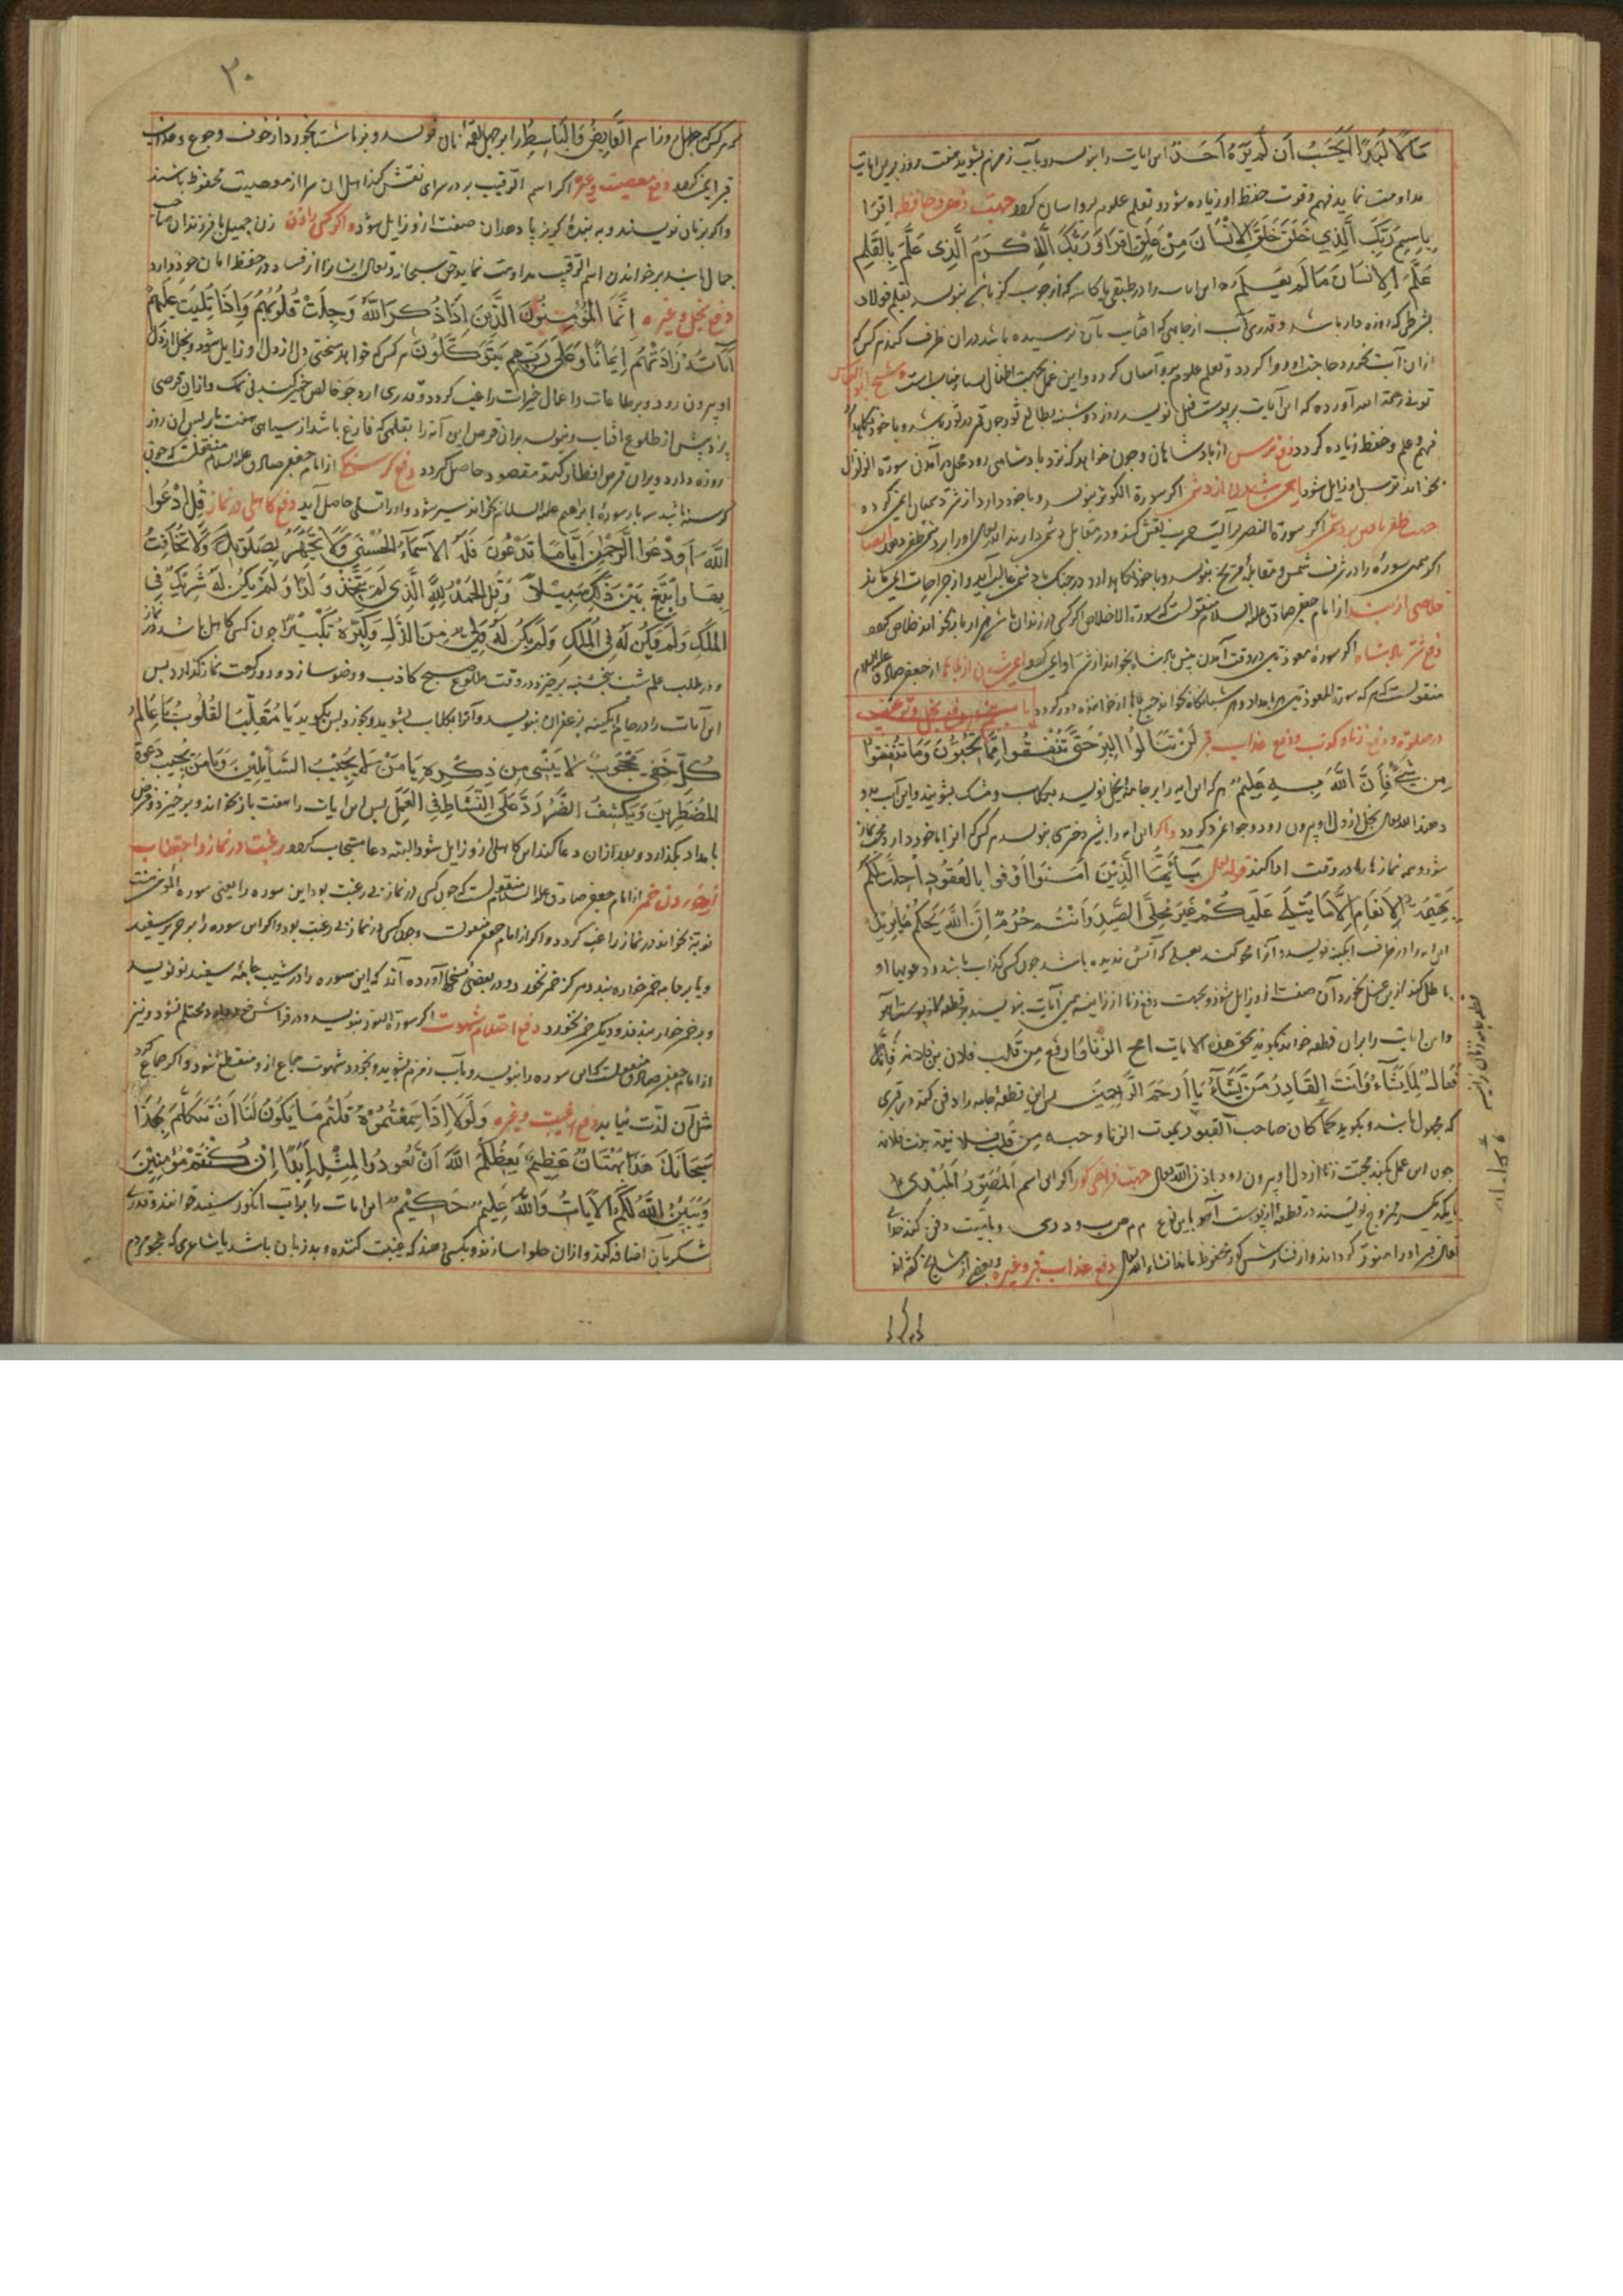 مَالًا لُبَدًا أَيَحْسَبُ أَن لَمْ يَرَهُ أَحَدٌ این ایات را بنویسد و بآب زمزم بشوید هفت روز برین ایات
مداومت نماید فهم و قوت حفظ او زیاده شود و تعلم علوم برو اسان کردد جهت ذهن و حافظه اقرَا
بِاسِمِ رَبِّكَ الَّذِي خَلَقَ خَلَقَ الاِنْسَانَ مِنْ عَلَقٍ اقرَا وَرَبُّكَ الأَكْرَمُ الَّذِي عَلَّمَ بِالقَلَمِ
عَلَّمَ الاِنسَانَ مَا لَم يَعلَم این ایات را در طبقی یا کاسه که از چوب کز باشد بنویسد بقلم فولاد
بشرطی که روزه دار باشد و قدری آب از جایی که افتاب بآن نرسیده باشد دران ظرف کند هر کس که
ازان آب بخورد حاجت او روا کردد و تعلم علوم برو آسان کردد و این عمل بجهت اطفال بسیار مناسب است و شیخ ابو العباس
تونی رحمة الله آورده که این آیات بر پوست نویسد روز دوشنبه بطالع ثور چون قمر در ثور باشد و با خود نکاهدارد
فهم و علم و حفظ زیاده کردد دفع ترس از پادشاهان و چون خواهد که نزد پادشاهی رود محل در آمدن سورة الزلزال
بخواند ترس او زایل شود ایمن شدن از دشمن اکر سورة الکوثر بنویسد و با خود دارد از شر دشمنان ایمن کردد
جهت ظفر یافتن بر دشمن اکر سورة النصر بر آلت حرب نقش کند و در مقابل دشمن دارند الله تعالی او را بر دشمن ظفر دهد ایضا
اکر همین سوره را در شرف شمس و مقابله مریخ بنویسد و با خود نکاهدارد در جنک با دشمن غالب آید و از جراحات ایمن ماند
خلاصی از بند از امام جعفر صادق علیه السلام منقولست که سورة الاخلاص اکر کسی در زندان باشد هزار بار بخواند خلاص کردد
دفع شر پادشاه اکر سورۀ معوذتین در وقت آمدن پیش پادشاه بخواند از شر او ایمن کردد ایمن شدن از بلاها از جعفر صادق علیه السلام
منقولست که هر که سورة المعوذتین هر بامداد و هر شبانکاه بخواند جمیع بلاها از خواننده دور کردد
در صلوة و دفع زنا و کذب و دفع عذاب قبر لَنْ تَنَالُوا البِرَّ حَتَّى تُنْفِقُوا مِمَّا تُحِبُّونَ وَمَا تُنْفِقُوا
مِن شَيْءٍ فَإِنَّ اللَّهَ بِهِ عَلِيمٌ هر که این ایه را بر جامۀ بخیل نویسد و بکلاب و مشک بشویند و این آب بدو
دهند الله تعالی بخل از دل او بیرون رود و جوانمرد کردد و اکر این ایه را
شود و همه نمازها را در وقت ادا کند قوله تعالی يَا أَيُّهَا الَّذِيْنَ آمَنُوا أَوْفُوا بِالعُقُودِ أُحِلَّتْ لَكُم
بَهِيْمَةُ الاَنعَامِ إِلَّا مَا يُتْلَى عَلَيكُمْ غَيْرَ مُحِلِّي الصَّيْدِ وَأَنْتُم حُرُمٌ إِنَّ اللَّهَ يَحْكُمُ مَا يُرِيْدُ
این ایه را در ظرف ابکینه نویسد و آنرا محو کنند بعسلی که آتش ندیده باشد چون کسی کذاب باشد و دعویها او
باطل کند ازین عسل بخورد آن صفت از و زایل شود و بجهت دفع زنا از زانیه همین آیات بنویسند
و این ایات را بران قطعه خوانند و بکویند بحق هذه الایات امح الزنا وارفع مِن قَلب فلان بن فلانه فَإِنَّكَ
فَعَّالٌ لِمَا يَشَاءُ وَأَنتَ القَادِرُ مَن تَشَاءُ يَا أَرحَمَ الرَّاحِمِيْنَ پس این قطعه جامه را دفن کند در قبری
که مجهول باشد و بکوید کما کان صاحب القبور یموت الزنا وحبه مِن قَلب فلانیة بنت فلانه
چون این عمل بکند محبت زنا از دل او بیرون رود باذن الله تعالی جهت فراخی کور اکر این اسم المُصَوِّرُ المُبْدِئُ
تعالی قبر او را منور کرداند و از فشارش کور محفوظ ماند انشاء الله تعالی دفع عذاب قبر و غیره و بعضی از مشایخ کفته اند
۳۰
هر کس که چهل روز اسم القَابِضُ وَالبَاسِطُ را بر چهل لقمۀ نان نویسد و بناشتا بخورد از خوف و جوع و عذاب
قبر ایمن کردد دفع معصیت و غیره اکر اسم الرقیب بر در سرای نقش کند اهل ان سرا از معصیت محفوظ باشند
و اکر بر نان نویسند و به بندۀ کریزپا دهد ان صفت از و زایل شود و اکر کسی را زن زن جمیل یا فرزندان صاحب
جمال باشد بر خواندن اسم الرقیب مداومت نماید حق سبحانه و تعالی ایشانرا از فساد در حفظ امان خود دارد
دفع بخل و غیره إِنَّمَا المُؤْمِنُونَ الَّذِينَ إِذَا ذُكِرَ اللَّهُ وَجِلَتْ قُلُوبُهُم وَإِذَا تُلِيَتْ عَلَيْهِمْ
آيَاتُهُ زَادَتْهُمْ إِيمَانًا وَعَلَى رَبِّهِم يَتَوَكَّلُونَ هر کس که خواهد سختی دل از دل او زایل شود و بخل از دل
او بیرون رود و بر طاعات و اعمال خیرات راغب کردد و قدری ارد جو خالص خمیر کند بی نمک و ازان قرصی
بپزد پیش از طلوع افتاب و بنویسد بران قرص این آیه را بقلمی که فارغ باشد از سیاهی هفت بار پس ان روز
روزه دارد و بران قرص افطار کند مقصود حاصل کردد دفع کرسنکی از امام جعفر صادق علیه السلام منقولست که چون
کرسنه باشد سه بار سورۀ ابراهیم علیه السلام بخواند سیر شود و او را تسلی حاصل آید دفع کاهلی در نماز قُلِ ادْعُوا
اللَّهَ أَوِ ادْعُوا الرَّحْمٰنَ أَيًّا مَا تَدْعُونَ فَلَهُ الاَسمَاءُ الحُسْنَى وَلَا تَجْهَرْ بِصَلَوتِكَ وَلَا تُخَافِتْ
بِهَا وَابْتَغِ بَيْنَ ذٰلِكَ سَبِيْلًا وَقُلِ الحَمْدُ لِلَّهِ الَّذِي لَمْ يَتَّخِذْ وَلَدًا وَلَمْ يَكُنْ لَهُ شَرِيْكٌ فِي
المُلْكِ وَلَمْ يَكُنْ لَهُ فِي المُلكِ وَلَم يَكُن لَهُ وَلِيٌّ مِنَ الذُّلِّ وَكَبِّرْهُ تَكْبِيْرًا چون کسی کاهل باشد در نماز
و در طلب علم شب پنجشنبه برخیزد در وقت طلوع صبح کاذب و وضو سازد و دو رکعت نماز کذارد پس
این آیات را در جام ابکینه بزعفران بنویسد و آنرا بکلاب بشوید و بخورد پس بکوید يَا مُقَلِّبَ القُلُوبِ يَا عَالِمَ
كُلِّ خَفِيٍّ مَحْجُوبٍ لَا يَنْسَى مِن ذِكْرِهِ يَا مَنْ لَهُ يُجِيْبُ السَّائِلِيْنَ وَيَا مَنْ يُجِيْبُ دَعوَةَ
المُضطَرِّيْنَ وَيَكشِفُ الضُّرَّ رُدَّ عَلَيَّ النَّشَاطَ فِي العَمَلِ پس این ایات را هفت بار بخواند و برخیزد و فرض
بامداد بکذارد و بعد ازان دعا کند این کاهلی از و زایل شود البته دعا مستجاب کردد رغبت در نماز و اجتناب
از خوردن خمر از امام جعفر صادق علیه السلام منقولست که چون کسی در نماز بی رغبت بود این سوره را یعنی سوره المؤمن هشت
نوبة بخواند در نماز راغب کردد و اکر از امام جعفر منقولست و چون کسی در نماز بی رغبت بود و اکر این سوره را بر حریر سفید
و یا بر جامه خمر خواره بندد هرکز خمر نخورد و در بعضی نسخها آورده اند که این سوره را در شیب جامۀ سفید نو نویسد
و بر خمر خوار بندند و دیکر خمر نخورد دفع احتلام شهوت اکر سورة النور بنویسد و در فراش خود دارد محتلم نشود و نیز
از امام جعفر صادق منقولست که این سوره را بنویسد و بآب زمزم بشوید و بخورد شهوت جماع از و منقطع شود و اکر جماع کند
مثل آن لذت نیابد دفع غیبت و غیره وَلَوْلَا إِذَا سَمِعْتُمُوهُ قُلْتُم مَا يَكُونُ لَنَا أَنْ نَتَكَلَّمَ بِهٰذَا
سُبحَانَكَ هٰذَا بُهْتَانٌ عَظِيْمٌ يَعِظُكُمُ اللَّهُ أَنْ تَعُودُوا لِمِثْلِهِ أَبَدًا إِنْ كُنْتُمْ مُؤمِنِيْنَ
وَيُبَيِّنُ اللَّهُ لَكُمُ الآيَاتِ وَاللَّهُ عَلِيْمٌ حَكِيْمٌ این ایات را بر آب انکور سفید خوانند و قدری
شکر بآن اضافه کنند و ازان حلوا سازند و بکسی دهند که غیبت کننده و بدزبان باشد یا شاعری که هجو مردم